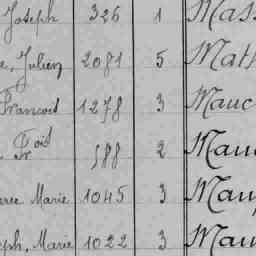 Joseph 326 1 Mass
e, Julien 2081 5 Math
François 1278 3 Mauc
Fois 588 2 Mau
rée Marie 1045 3 Mau
eph, Marie 1022 3 Mau